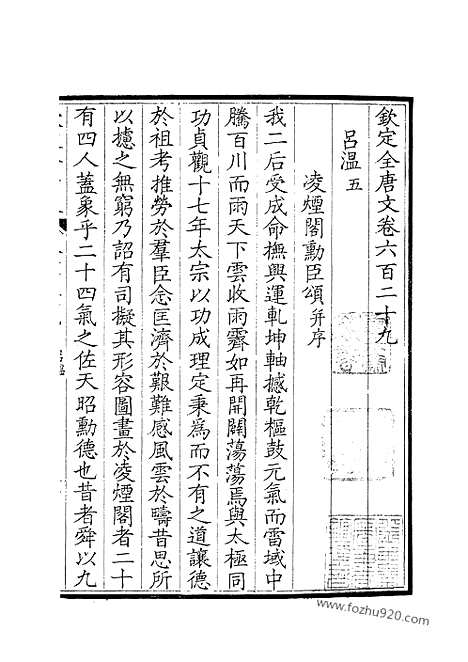 欽定全唐文卷六百二十九
呂溫五
凌煙閣勳臣頌并序
我二后受成命撫興運軋坤軸撼乾樞鼓元氣而雷域中
騰百川而雨天下雲收雨霽如再開闢蕩蕩焉與太極同
功貞觀十七年太宗以功成理定秉為而不有之道讓德
於祖考推勞於羣臣念匡濟於艱難感風雲於疇昔思所
以攄之無窮乃詔有司擬其形容圖畫於凌煙閣者二十
有四人蓋象乎二十四氣之佐天昭勳德也昔者舜以九
www.fozhu920.com